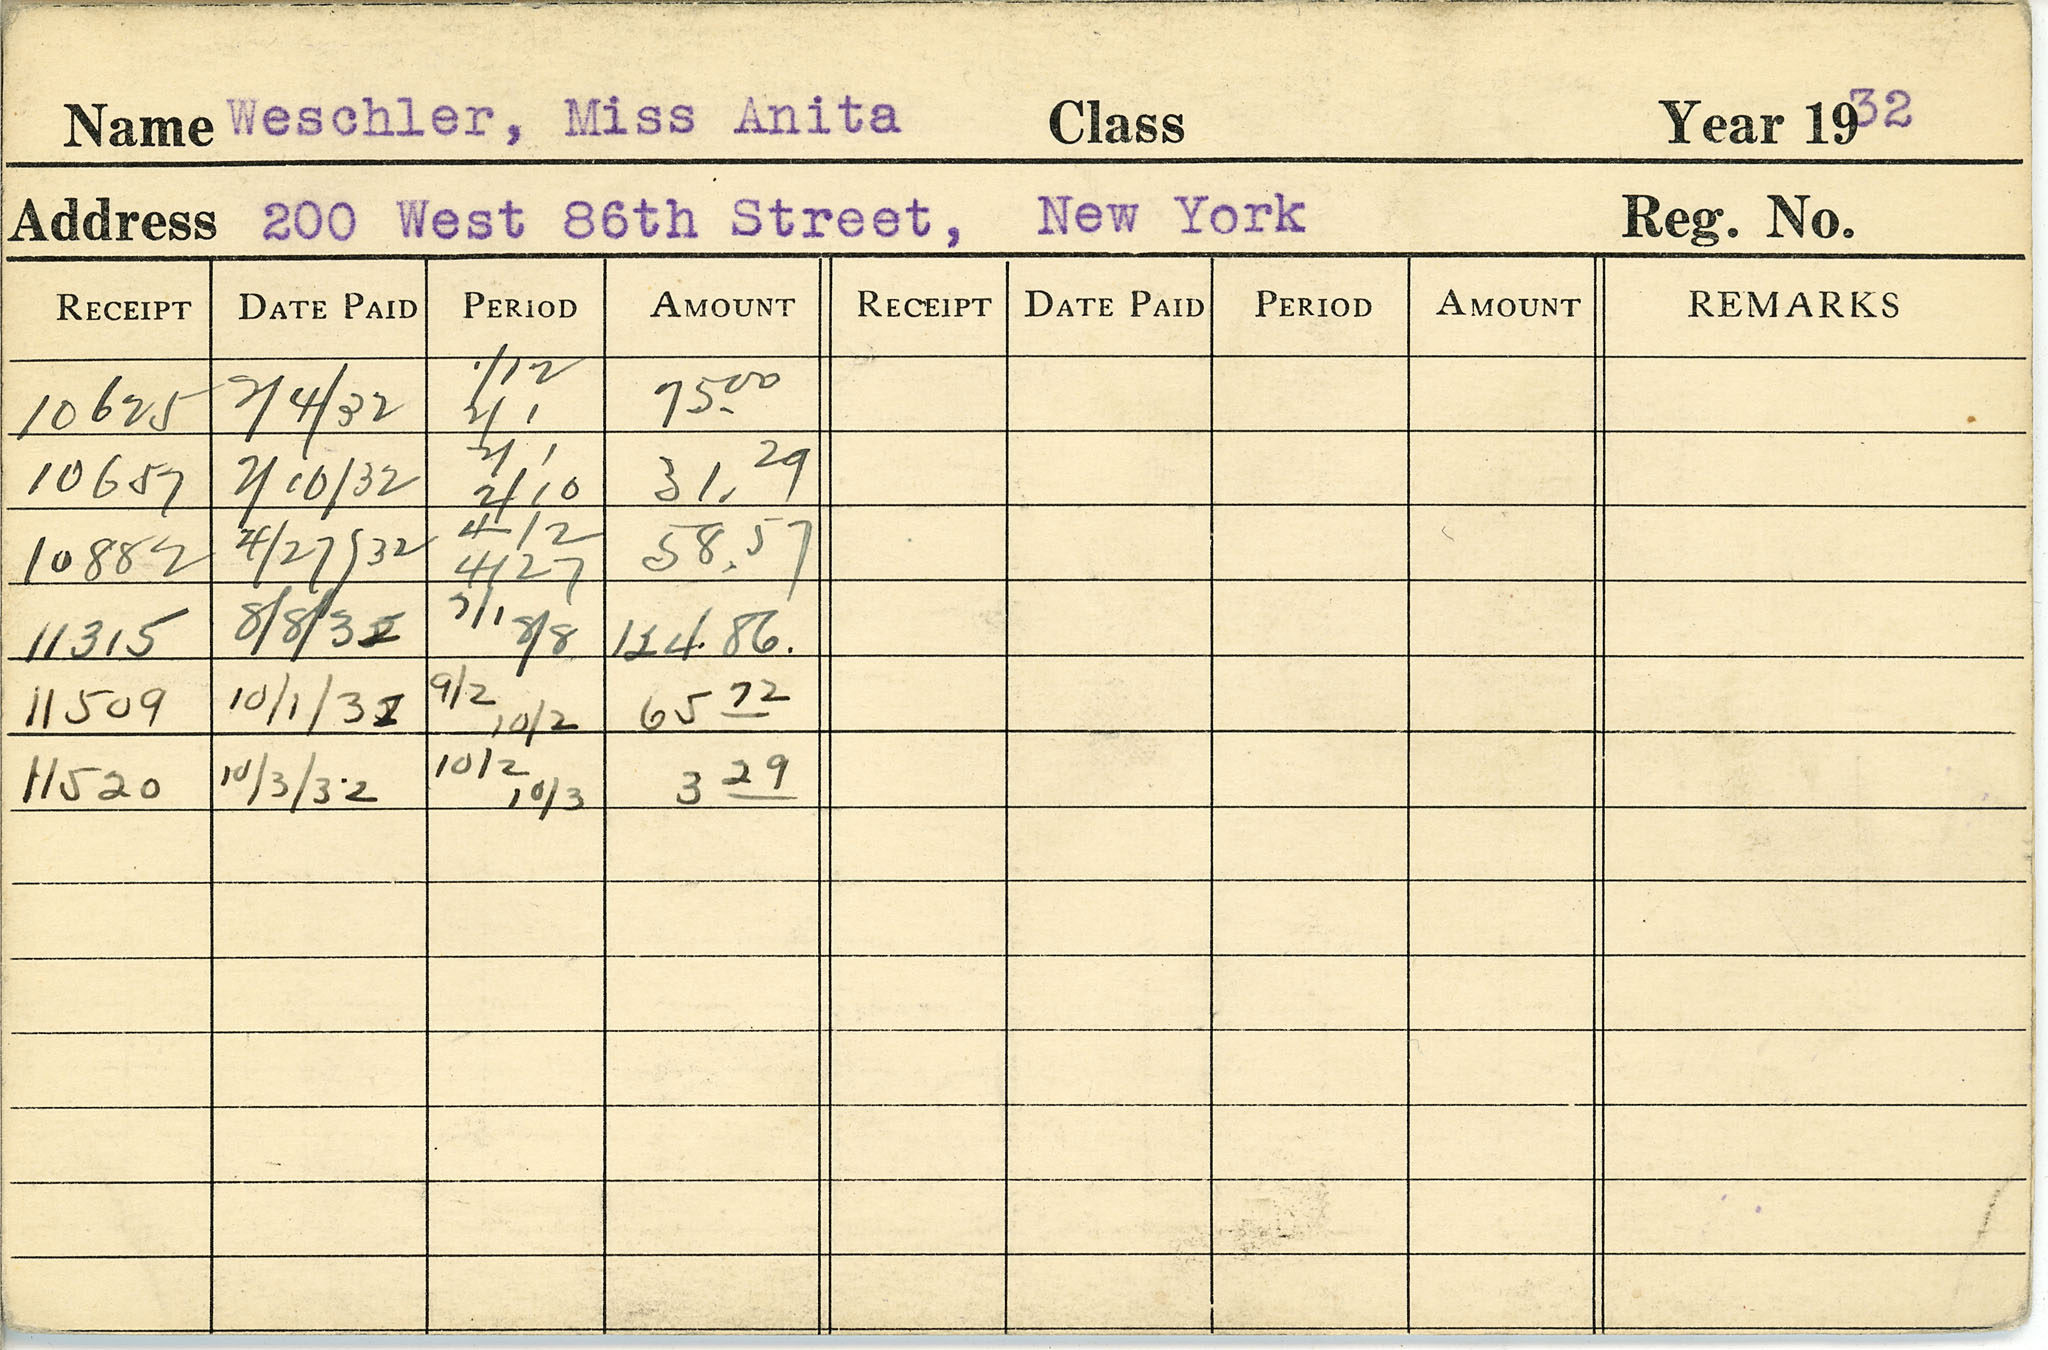 Name Weschler, Miss Anita Class Year 1932
Address 200 West 86th Street, New York Reg. No.
RECEIPT DATE PAID PERIOD AMOUNT RECEIPT DATE PAID PERIOD AMOUNT REMARKS
1/12
10625 2/4/32 2/1 75.00
2/1
10657 2/10/32 2/10 31.29
4/12
10882 4/27/32 4/27 58.57
11315 8/8/32 7/1 8/8 124.86.
11509 10/1/32 9/2 10/2 65 72
11520 10/3/32 10/2 10/3 3 29